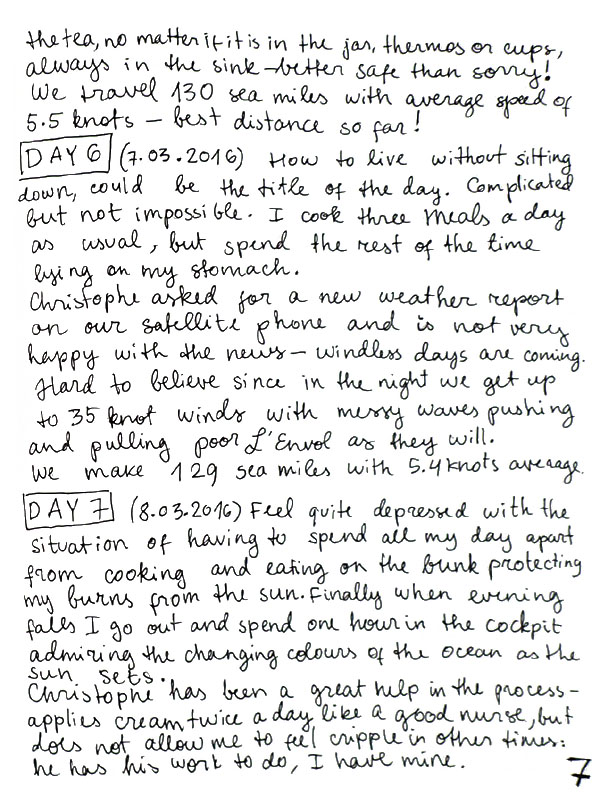 the tea, no matter if it is in the jar, thermos or cups,
always in the sink – better safe than sorry!
We travel 130 sea miles with average speed of
5.5 knots – best distance so far!
DAY 6 (7.03.2016) How to live without sitting
down, could be the title of the day. Complicated
but not impossible. I cook three meals a day
as usual, but spend the rest of the time
lying on my stomach.
Christophe asked for a new weather report
on our satellite phone and is not very
happy with the news – windless days are coming.
Hard to believe since in the night we get up
to 35 knot winds with messy waves pushing
and pulling poor L'Envol as they will.
We make 129 sea miles with 5.4 knots average.
DAY 7 (8.03.2016) Feel quite depressed with the
situation of having to spend all my day apart
from cooking and eating on the bunk protecting
my burns from the sun. Finally when evening
falls I go out and spend one hour in the cockpit
admiring the changing colours of the ocean as the
sun sets.
Christophe has been a great help in the process –
applies cream twice a day like a good nurse, but
does not allow me to feel cripple in other times:
he has his work to do, I have mine.
7